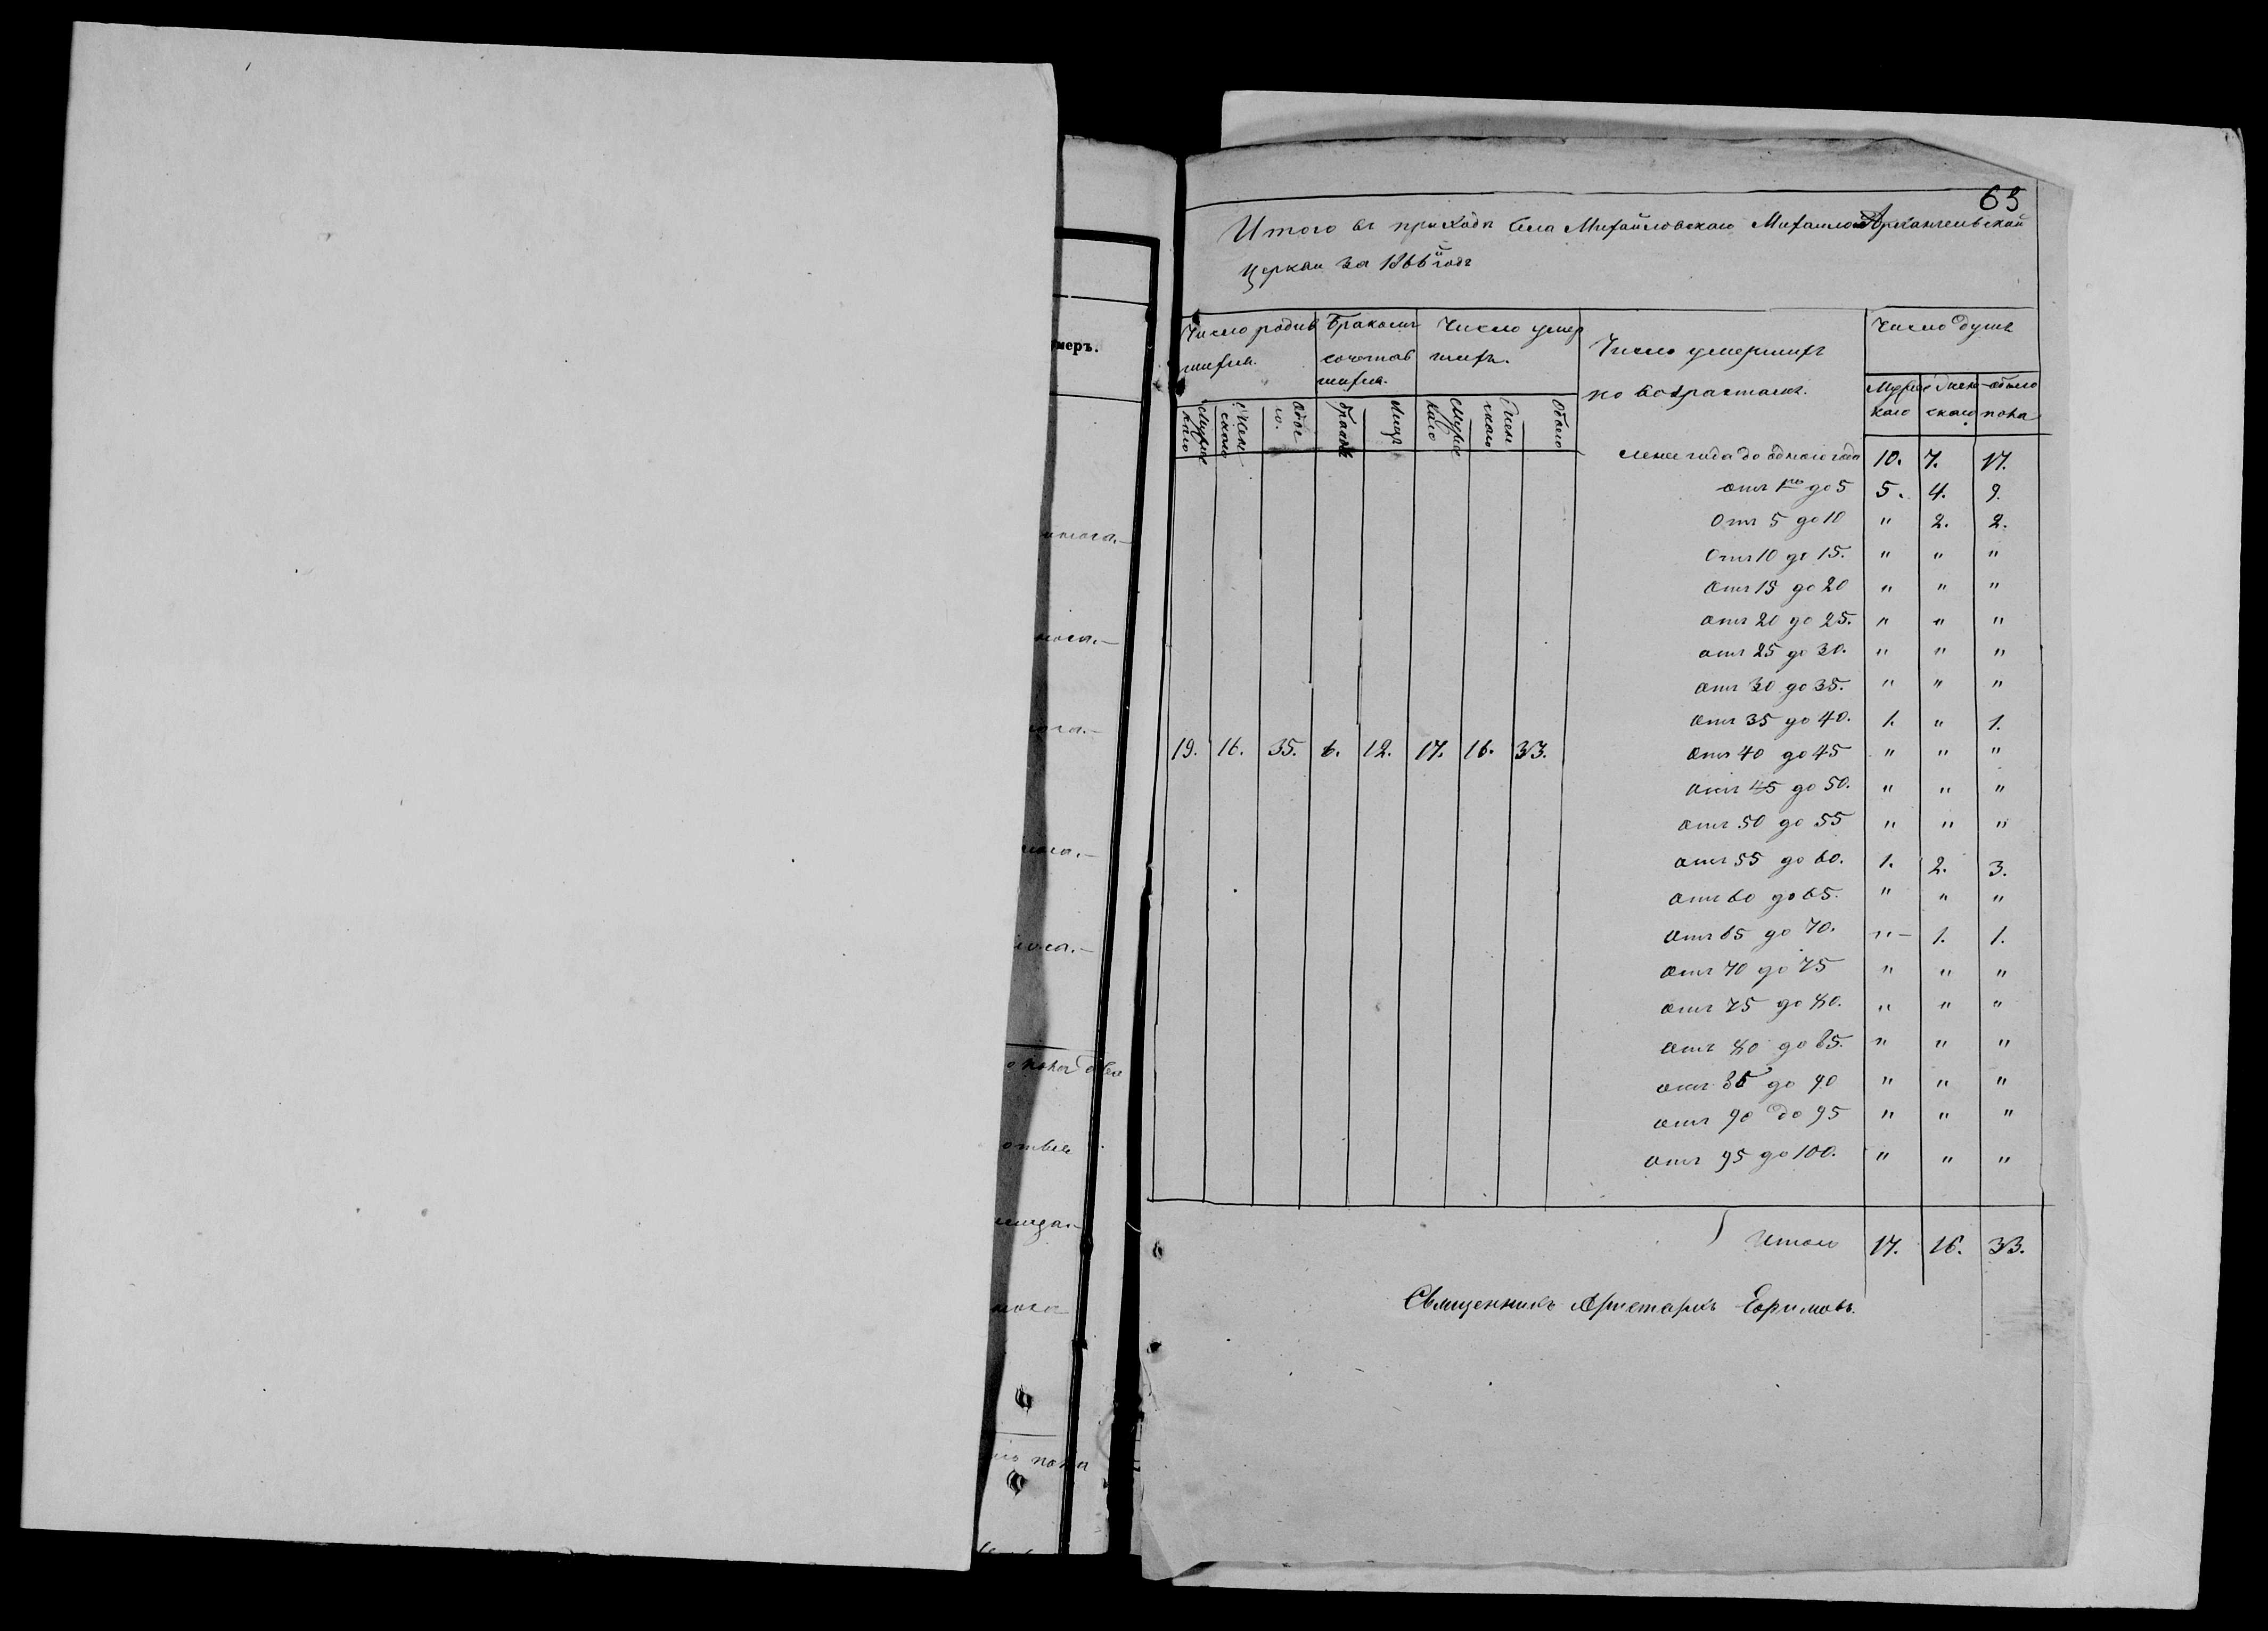 63
Итого въ приходѣ села Михайловскаго Михаило Архангельской
Церкви за 1866й годъ
Число родив
шихся.
Бракомъ
сочетав
шихся.
Число умер
шихъ.
Число умершихъ
по возрастамъ.
Число душъ
Мужес
каго
Жен
скаго
обоего
пола
Мужес
каго
Жен
скаго
Обое
го.
Браковъ
Лицъ
Мужес
каго
Жен
скаго
Обоего
Менее года до одного года 10. 7. 17.
отъ 1го до 5 5. 4. 9.
Отъ 5 до 10 " 2. 2.
Отъ 10 до 15. " " "
Отъ 15 до 20 " " "
отъ 20 до 25. " " "
отъ 25 до 30. " " "
отъ 30 до 35. " " "
отъ 35 до 40. 1. " 1.
19. 16. 35. 6. 12. 17. 16. 33.
отъ 40 до 45 " " "
отъ 45 до 50. " " "
отъ 50 до 55 " " "
отъ 55 до 60. 1. 2. 3.
отъ 60 до 65. " " "
отъ 65 до 70. " 1. 1.
отъ 70 до 75 " " "
отъ 75 до 80. " " "
отъ 80 до 85. " " "
отъ 85 до 90 " " "
отъ 90 до 95 " " "
отъ 95 до 100. " " "
Итого 17. 16. 33.
Священникъ Аристархъ Ефимовъ.
меръ.